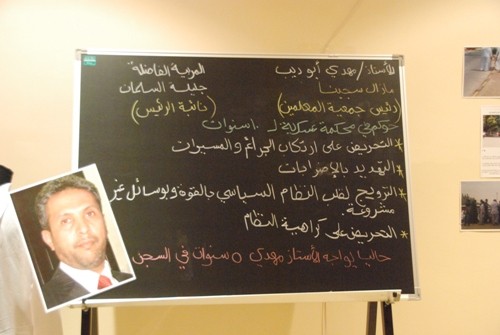 للأستاذ/مهدي أبو ديب
مازال سجينا
(رئيس جمعية المعلمين)
المربية الفاضلة
جليلة السلمان
(نائبة الرئيس)
حوكم في محكمة عسكرية لـ ١٠ سنوات
*التحريض على ارتكاب الجرائم والمسيرات
*التهديد بالإضرابات
*الترويج لقلب النظام السياسي بالقوة وبوسائل غير
مشروعة.
*التحريض على كراهية النظام
حاليا يواجه الأستاذ مهدي ٥ سنوات في السجن